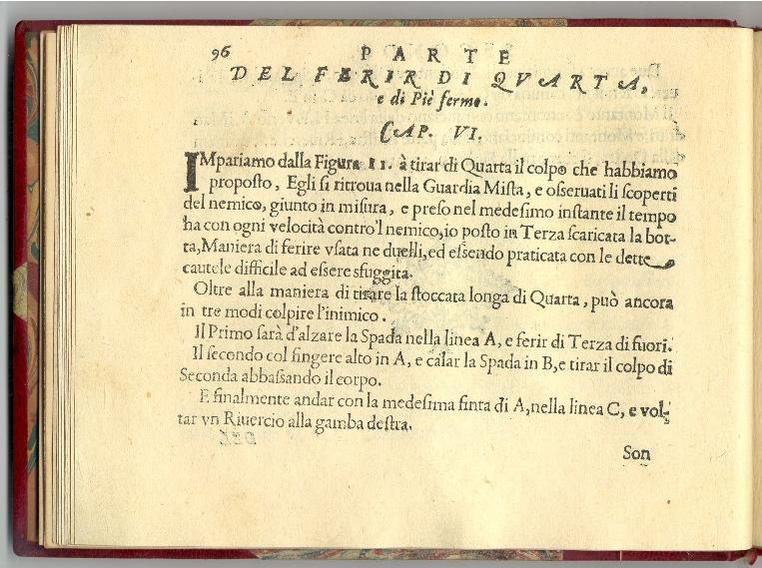 96
PARTE
DEL FERIR DI QVARTA,
e di Piè fermo.
CAP. VI.
IMpariamo dalla Figura II. à tirar di Quarta il colpo che habbiamo
propoſto, Egli ſi ritroua nella Guardia Miſta, e oſſeruati li ſcoperti
del nemico, giunto in miſura, e preſo nel medeſimo inſtante il tempo
ha con ogni velocità contro'l nemico, io poſto in Terza ſcaricata la bot-
ta, Maniera di ferire vſata ne duelli, ed eſſendo praticata con le dette
cautele difficile ad eſſere sfuggita.
Oltre alla maniera di tirare la ſtoccata longa di Quarta, può ancora
in tre modi colpire l'inimico.
Il Primo ſarà d'alzare la Spada nella linea A, e ferir di Terza di fuori.
Il ſecondo col fingere alto in A, e calar la Spada in B, e tirar il colpo di
Seconda abbaſſando il corpo.
E finalmente andar con la medeſima finta di A, nella linea C, e vol-
tar vn Riuercio alla gamba deſtra.
Son